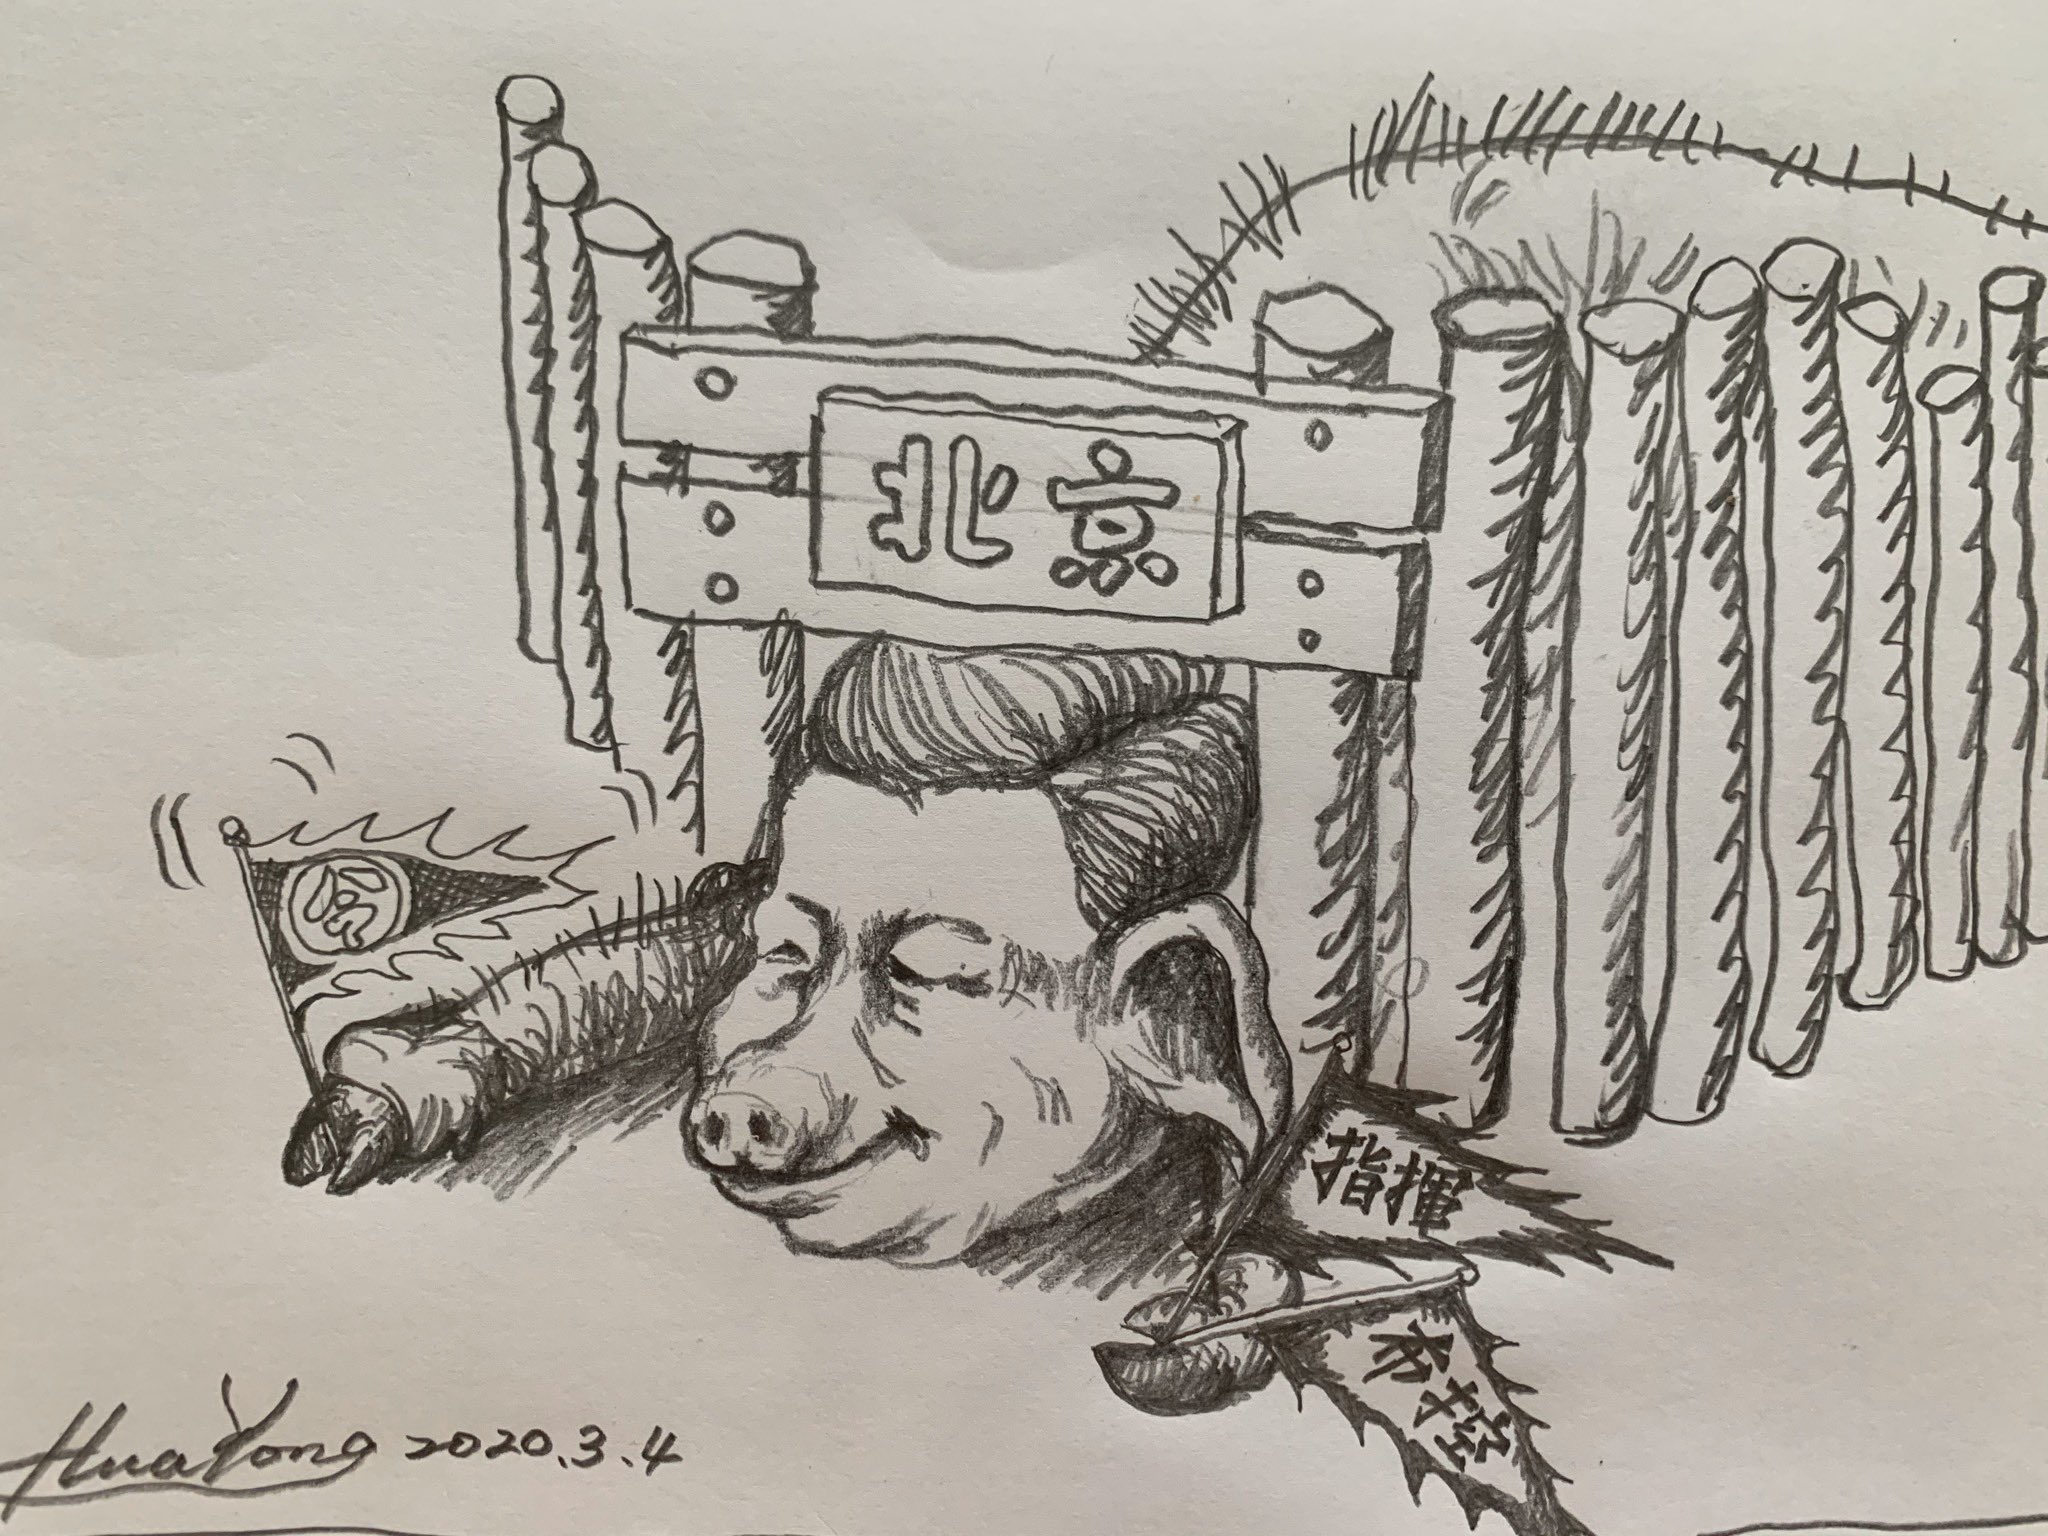 北京
指揮
布控
HuaYong 2020.3.4